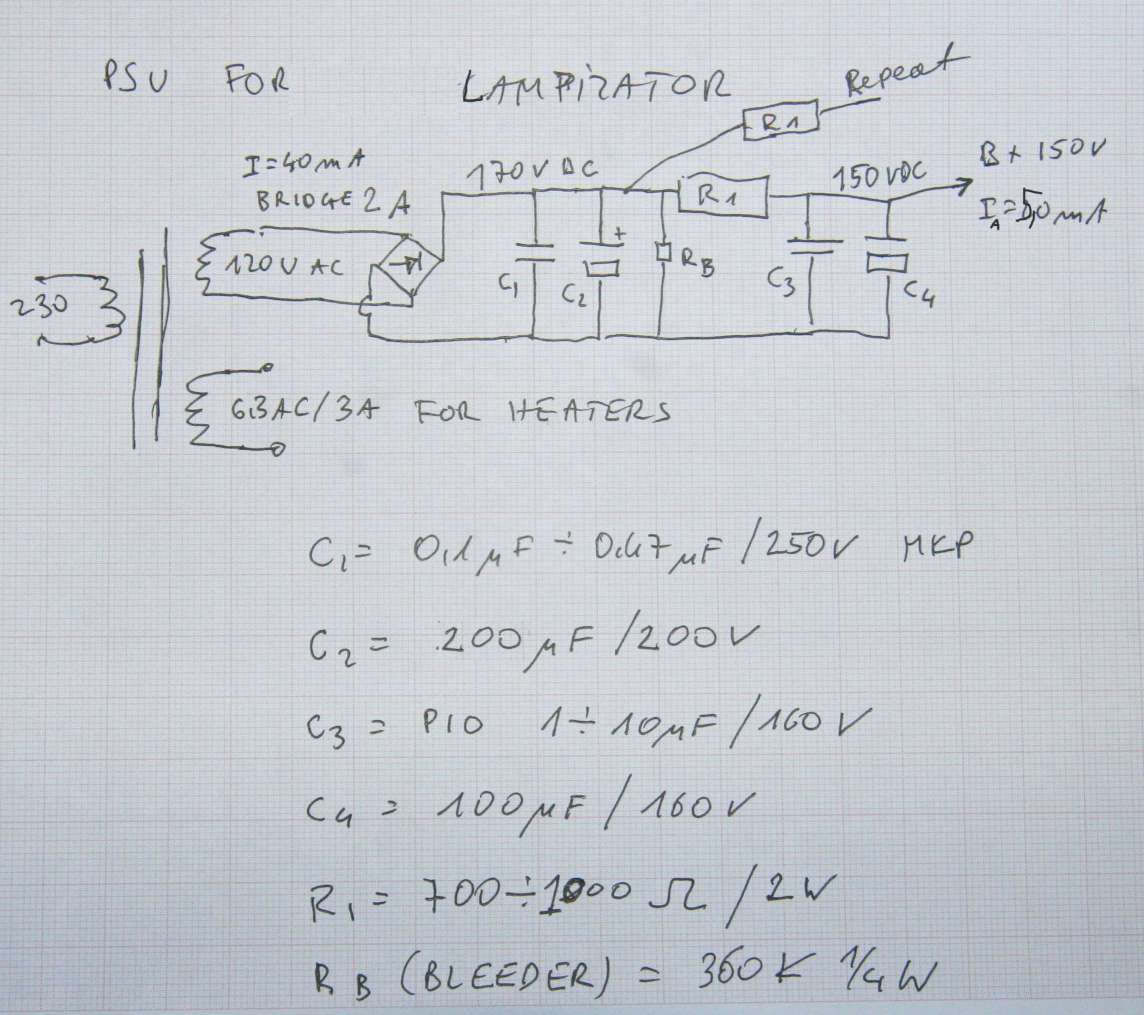 PSU FOR LAMPIZATOR
Repeat
R1
I=40mA
BRIDGE 2A
170V DC
R1
150VDC
B+ 150V
I_A=5,0mA
120V AC
+
C1
C2
RB
C3
C4
230
6,3AC/3A FOR HEATERS
C1= 0,1µF ÷ 0,47µF /250V MKP
C2 = 200µF /200V
C3 = PIO 1÷10µF/160V
C4 = 100µF/160V
R1 = 700÷1000 Ω /2W
RB (BLEEDER) = 360K 1/4W